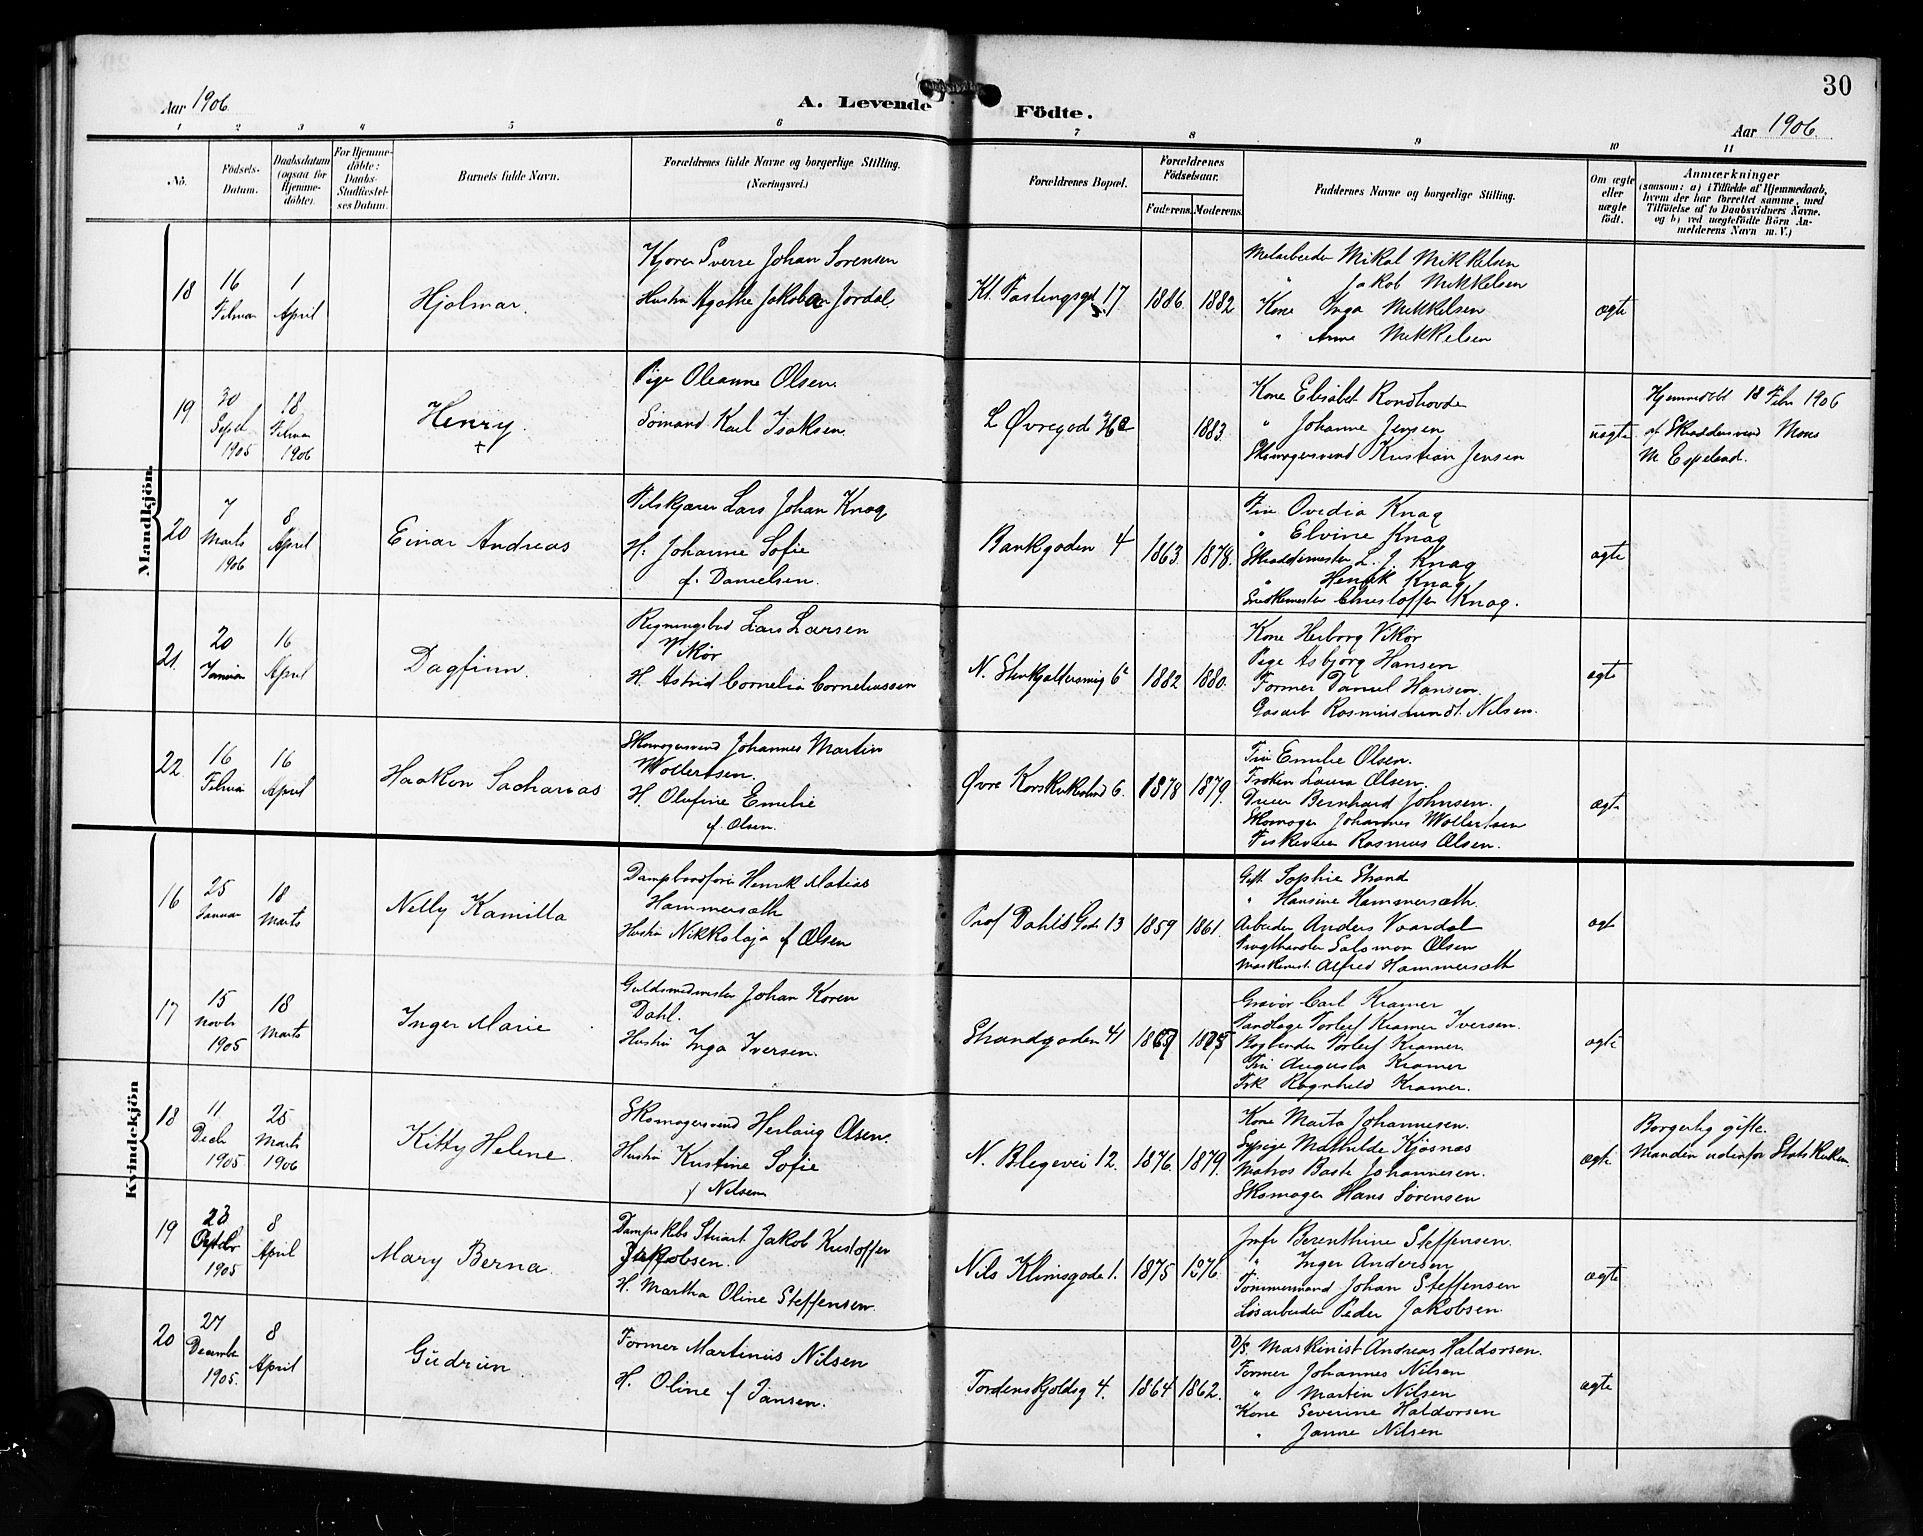 30
Aar 1906.
A. Levende Födte.
Aar 1906.
1 2 3 4 5 6 7 8 9 10 11
No.
Födsels-Datum.
Daabsdatum (ogsaa for Hjemme-döbte).
For Hjemme-döbte: Daabs-Stadfæstelses Datum.
Barnets fulde Navn.
Forældrenes fulde Navne og borgerlige Stilling.
(Næringsvei.)
Forældrenes Bopæl.
Forældrenes Födselsaar.
Faderens. Moderens.
Faddernes Navne og borgerlige Stilling.
Om ægte eller uægte födt.
Anmærkninger
(saasom: a) i Tilfælde af Hjemmedaab,
hvem der har forrettet samme, med
Tilföielse af to Daabsvidners Navne,
og b) ved uægtefödte Börn An-
melderens Navn m. V.)
Mandkjön.
18
16 Februar
1 April
Hjalmar.
Kjører Sverre Johan Sørensen
Hustru Agathe Jakoba Jordal
Kl. Fastingsgd 17
1886 1882
Mikal Mikkelsen
" Jakob Mikkelsen
Kone Inga Mikkelsen
" Anna Mikkelsen
ægte
19
30 Septel 1905
18 Februar 1906
Henry.
+
Pige Oleanne Olsen.
Sømand Karl Isaksen.
L Øvregad 36a
1883.
Kone Elisabet Rondhovde
" Johanne Jensen
Skomagersvend Kristian Jensen
uægte
Hjemmedøbt 18 Febr 1906
af Skræddersvend Mons
M. Espeland.
20
7 Marts 1906
8 April
Einar Andreas
Lars Johan Knag
H. Johanne Sofie
f. Danielsen.
Bankgaden 4
1863. 1878.
Fru Ovedia Knag
" Elvine Knag
Skræddermester L. J. Knag
" Henrik Knag
Christoffer Knag.
ægte
21.
20 Januar
16 April
Dagfinn.
Regningsbud Lars Larsen
Vikør
H. Astrid Cornelia Corneliussen
N. Stenkjeldersmug 6c
1882 1880.
Kone Herborg Vikør
Pige Asbjørg Hansen
Former Daniel Hansen.
Gasarb Rasmus Lundt Nilsen.
ægte
22.
16 Februar
16 April
Haakon Sacharias
Skomagersvend Johannes Martin
Wollertsen.
H. Olufine Emelie
f. Olsen.
Øvre Korskirkealmd 6.
1878 1879.
Fru Emilie Olsen.
Frøken Laura Olsen.
Dreier Bernhard Johnsen.
Skomager Johannes Wollertsen
Rasmus Olsen.
ægte
Kvindekjön
16
25 Januar
18 Marts
Nelly Kamilla
Dampbaadfører Henrik Matias
Hammersøth
Hustru Nikkolaja f Olsen
Prof Dahls Gade 13
1859 1861.
Gift. Sophie Strand
" Hansine Hammersøth.
Arbeider Anders Vaardal
Frugthandler Salomon Olsen
Maskinist Alfred Hammersøth
ægt
17
15 Novbr 1905
18 Marts
Inger Marie
Guldsmedmester Johan Koren
Dahl.
Hustru Inga Iversen.
Strandgaden 41
1867 1875
Gravør Carl Kramer
Tandlæge Torleif Kramer Iversen.
Bogbinder Torleif Kramer.
Fru Augusta Kramer
Frk Ragnhild Kramer.
ægte
18
11 Decbr 1905.
25 Marts 1906
Kitty Helene.
Skomagersvend Herlaug Olsen.
Hustru Kristine Sofie
f Nilsen
N. Blegevei 12.
1876. 1879.
Kone Marta Johannesen.
Sypige Mathilde Kjøsnæs
Matros Baste Johannesen.
Skomager Hans Sørensen
ægte
Borgerlig gifte.
Manden udenfor Statskirken.
19
23 1905
8 April
Mary Berna.
Dampskibs Stuart Jakob Kristoffer
Jakobsen.
H. Martha Oline Steffensen.
Nils Klimsgade 1.
1875 1876.
Jmfr Berenthine Steffensen.
" Inger Andersen
Tømmermand Johan Steffensen
Løsarbeider Peder Jakobsen.
ægte
20
27 Decembr 1905.
8 April
Gudrun
Former Martinus Nilsen
H. Oline f Jansen.
Tordenskjoldsg 4.
1864 1862.
D/S. Maskinist Andreas Haldorsen.
Former Johannes Nilsen
" Martin Nilsen
Kone Severine Haldorsen
" Janne Nilsen
ægte